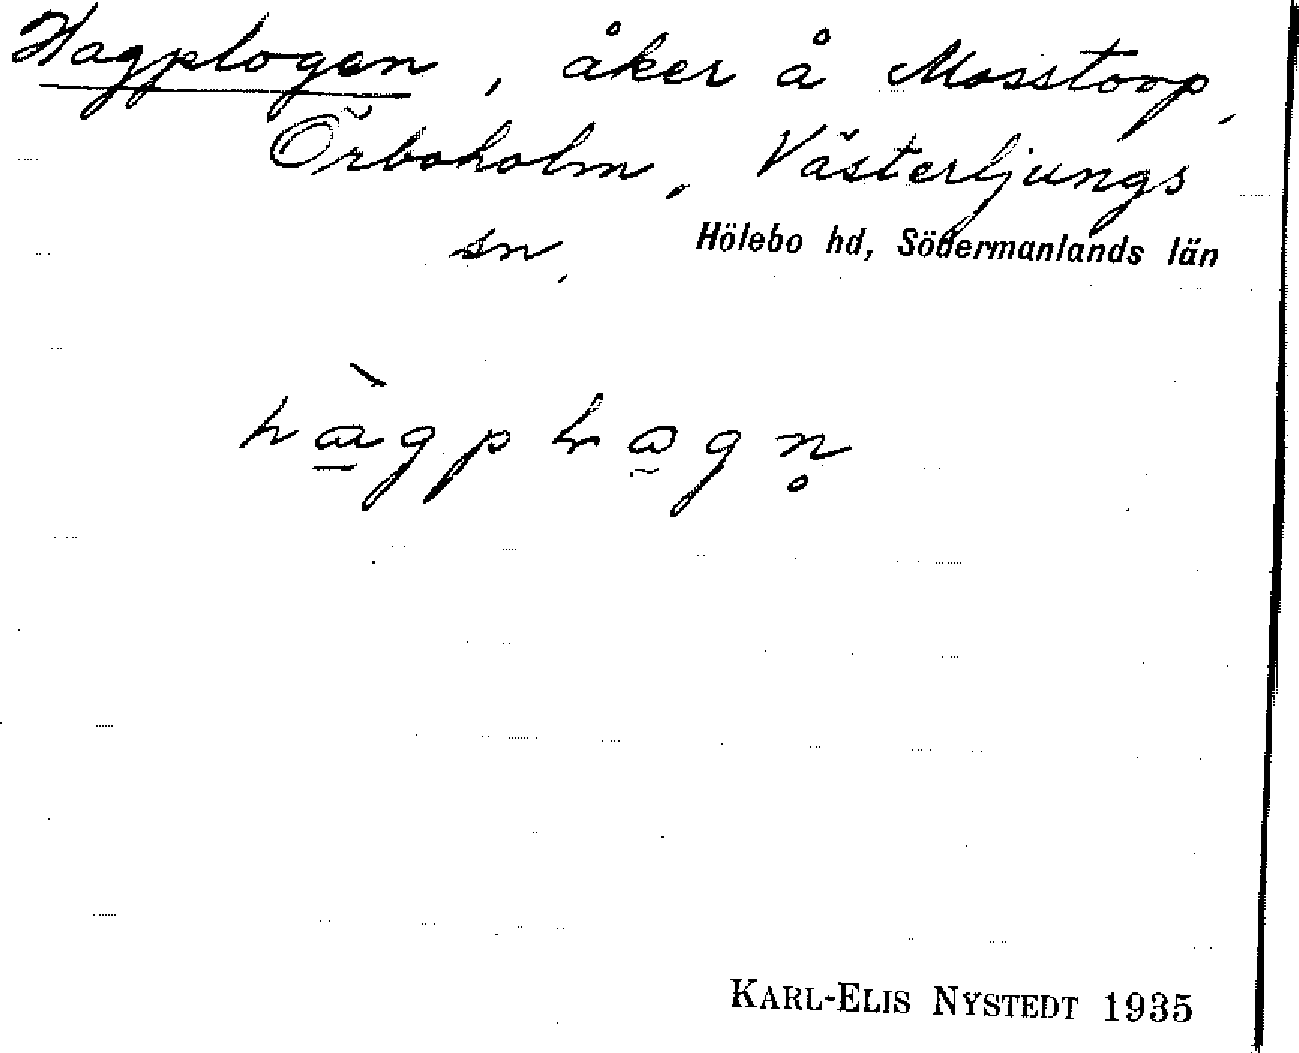 Hagplogen, åker å Mosstorp,
Örboholm, Västerljungs
sn. Hölebo hd, Södermanlands län
KARL-ELIS NYSTEDT 1935